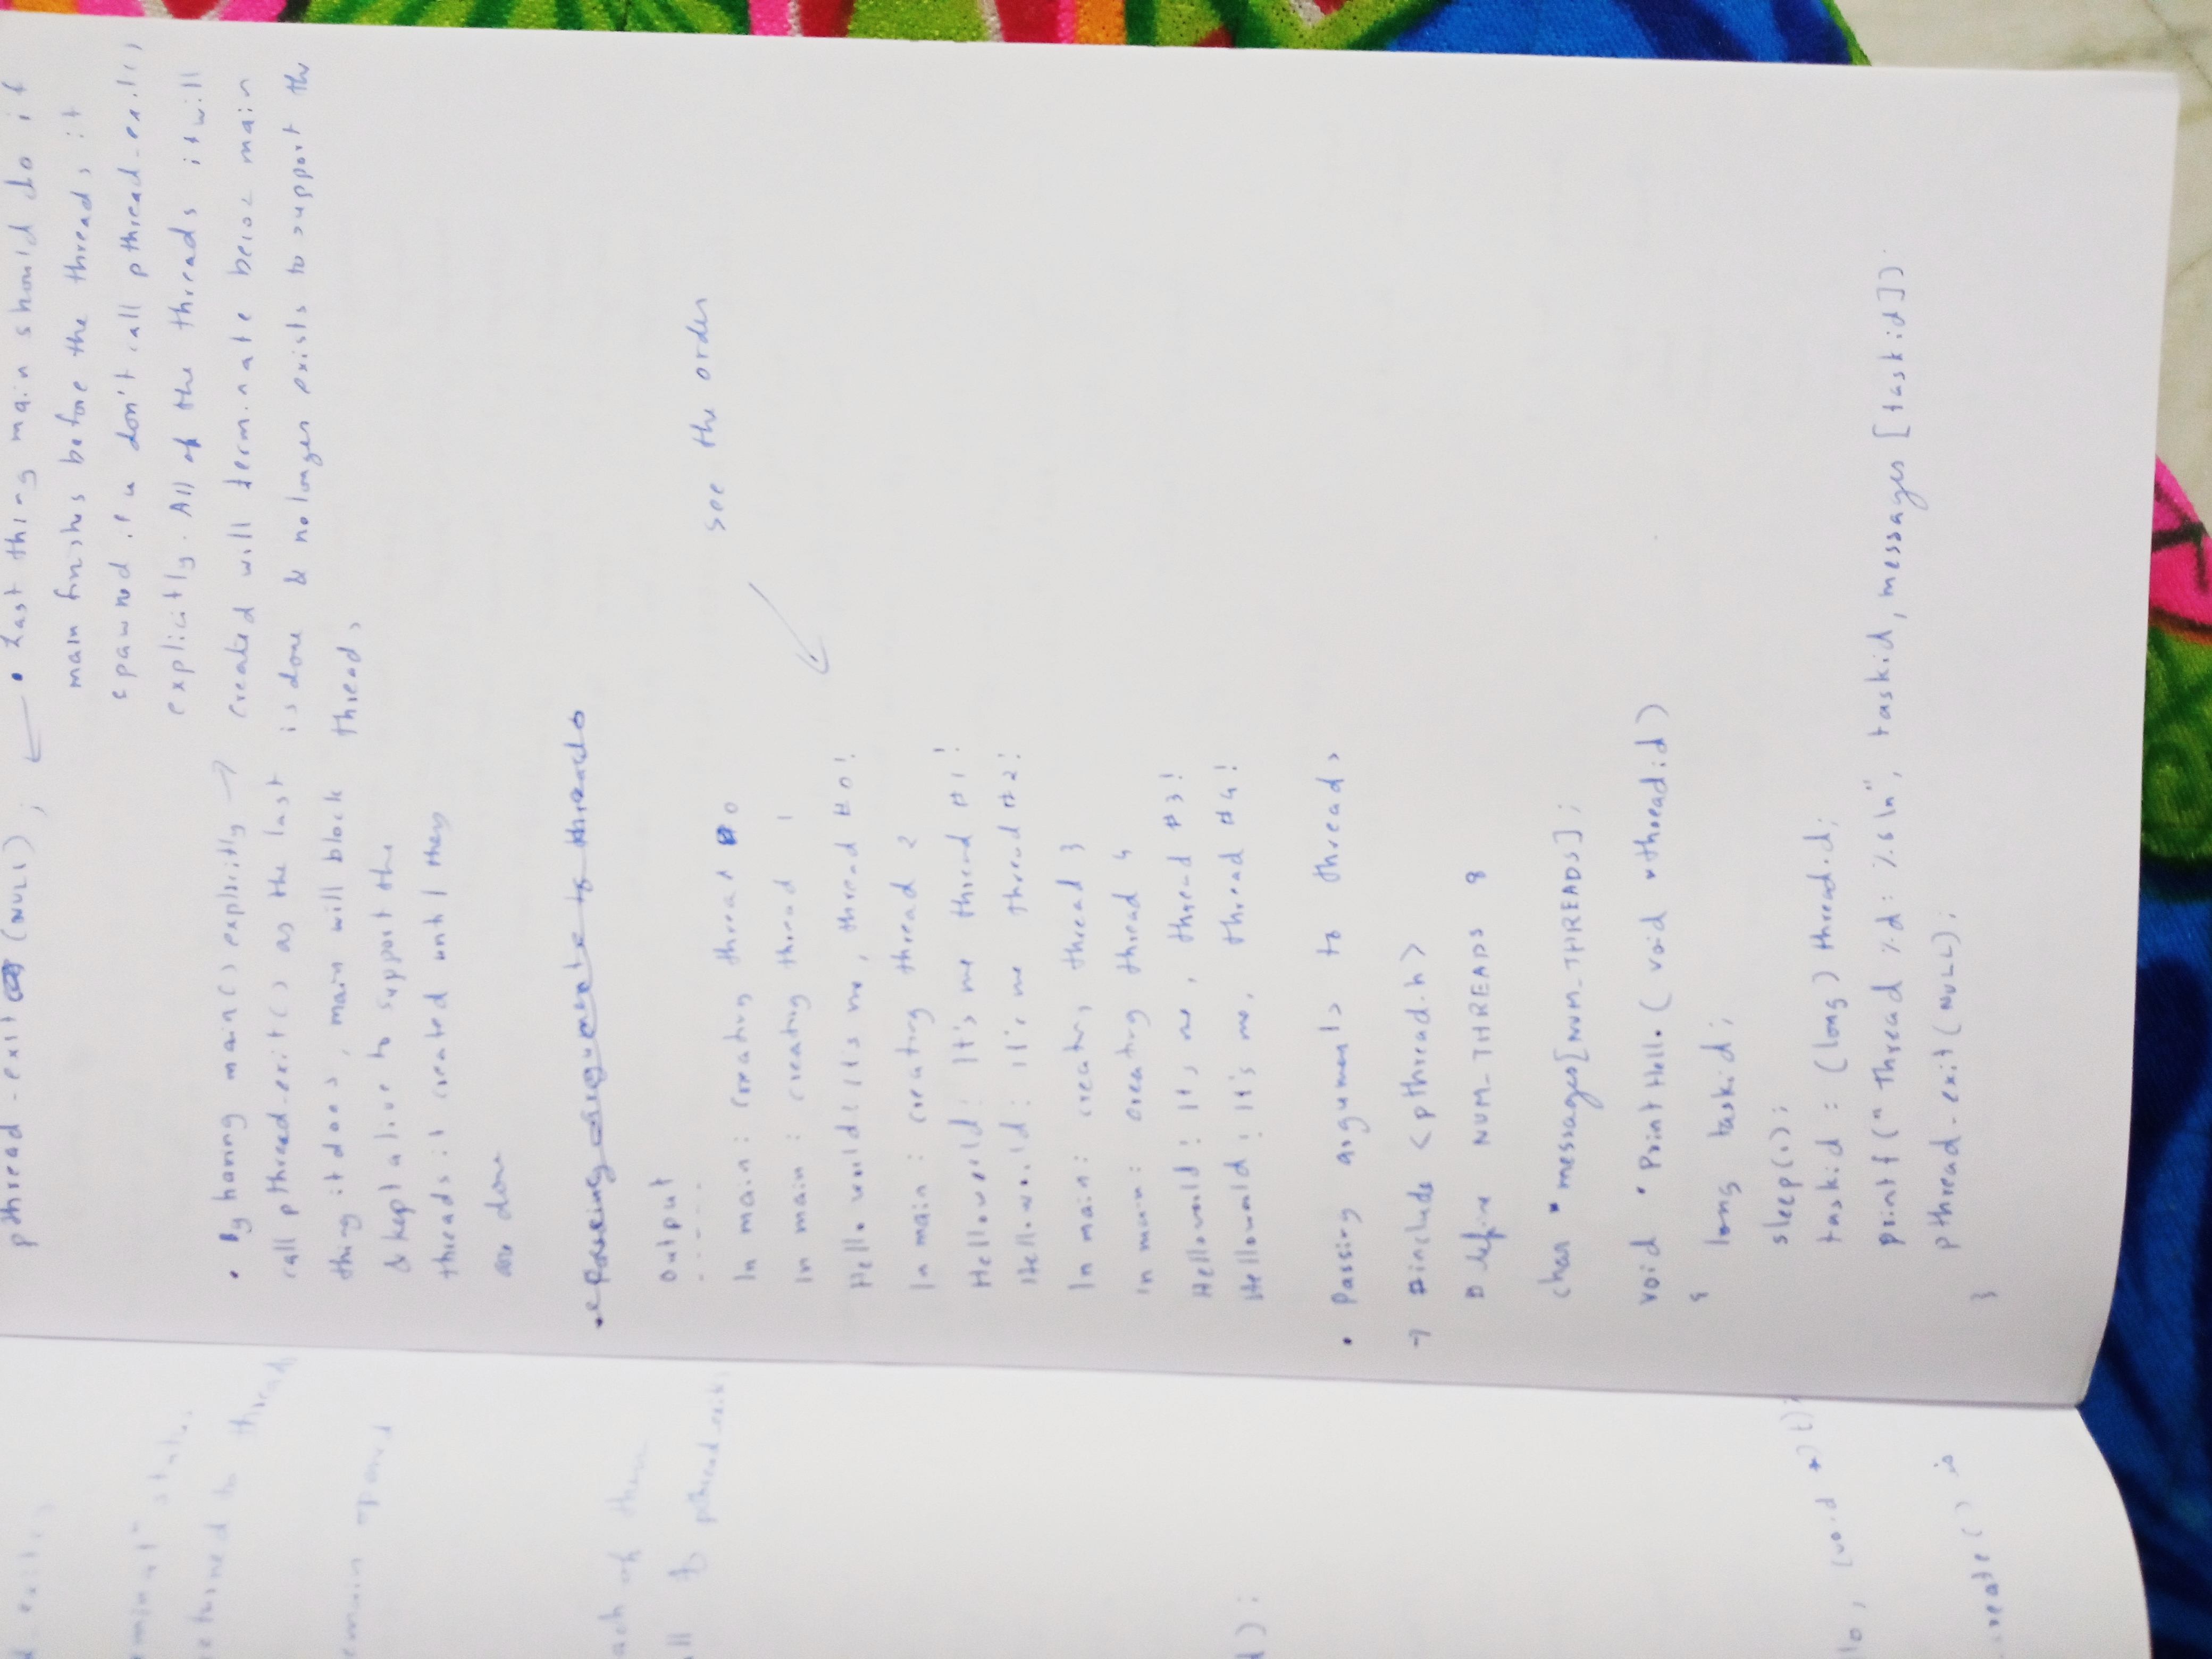 pthread_exit (NULL);
• Last thing main should do if
main finishes before the threads it
spawned if u don't call pthread_exit()
explicitly. All of the threads it will
created will terminate main
is done & no longer exists to support the
threads
• By having main() explicitly →
call pthread_exit() as the last
thing it does, main will block
& kept alive to support the
threads it created until they
are done
• Passing arguments to threads
output
-----
In main: creating thread 0
In main: creating thread 1
Hello world: It's me, thread #0!
In main: creating thread 2
Hello world: It's me thread #1!
Hello world: It's me thread #2!
In main: creating thread 3
In main: creating thread 4
Hello world: It's me, thread #3!
Hello world: It's me, thread #4!
see the order
• Passing arguments to threads
→ #include <pthread.h>
#define NUM_THREADS 8
char *messages[NUM_THREADS];
void *PrintHello (void *threadid)
{
long taskid;
sleep(1);
taskid = (long) threadid;
printf("Thread %d: %s\n", taskid, messages [taskid]);
pthread_exit(NULL);
}
main spawned
each of them
pthread_exit
(void *)t);
create() is